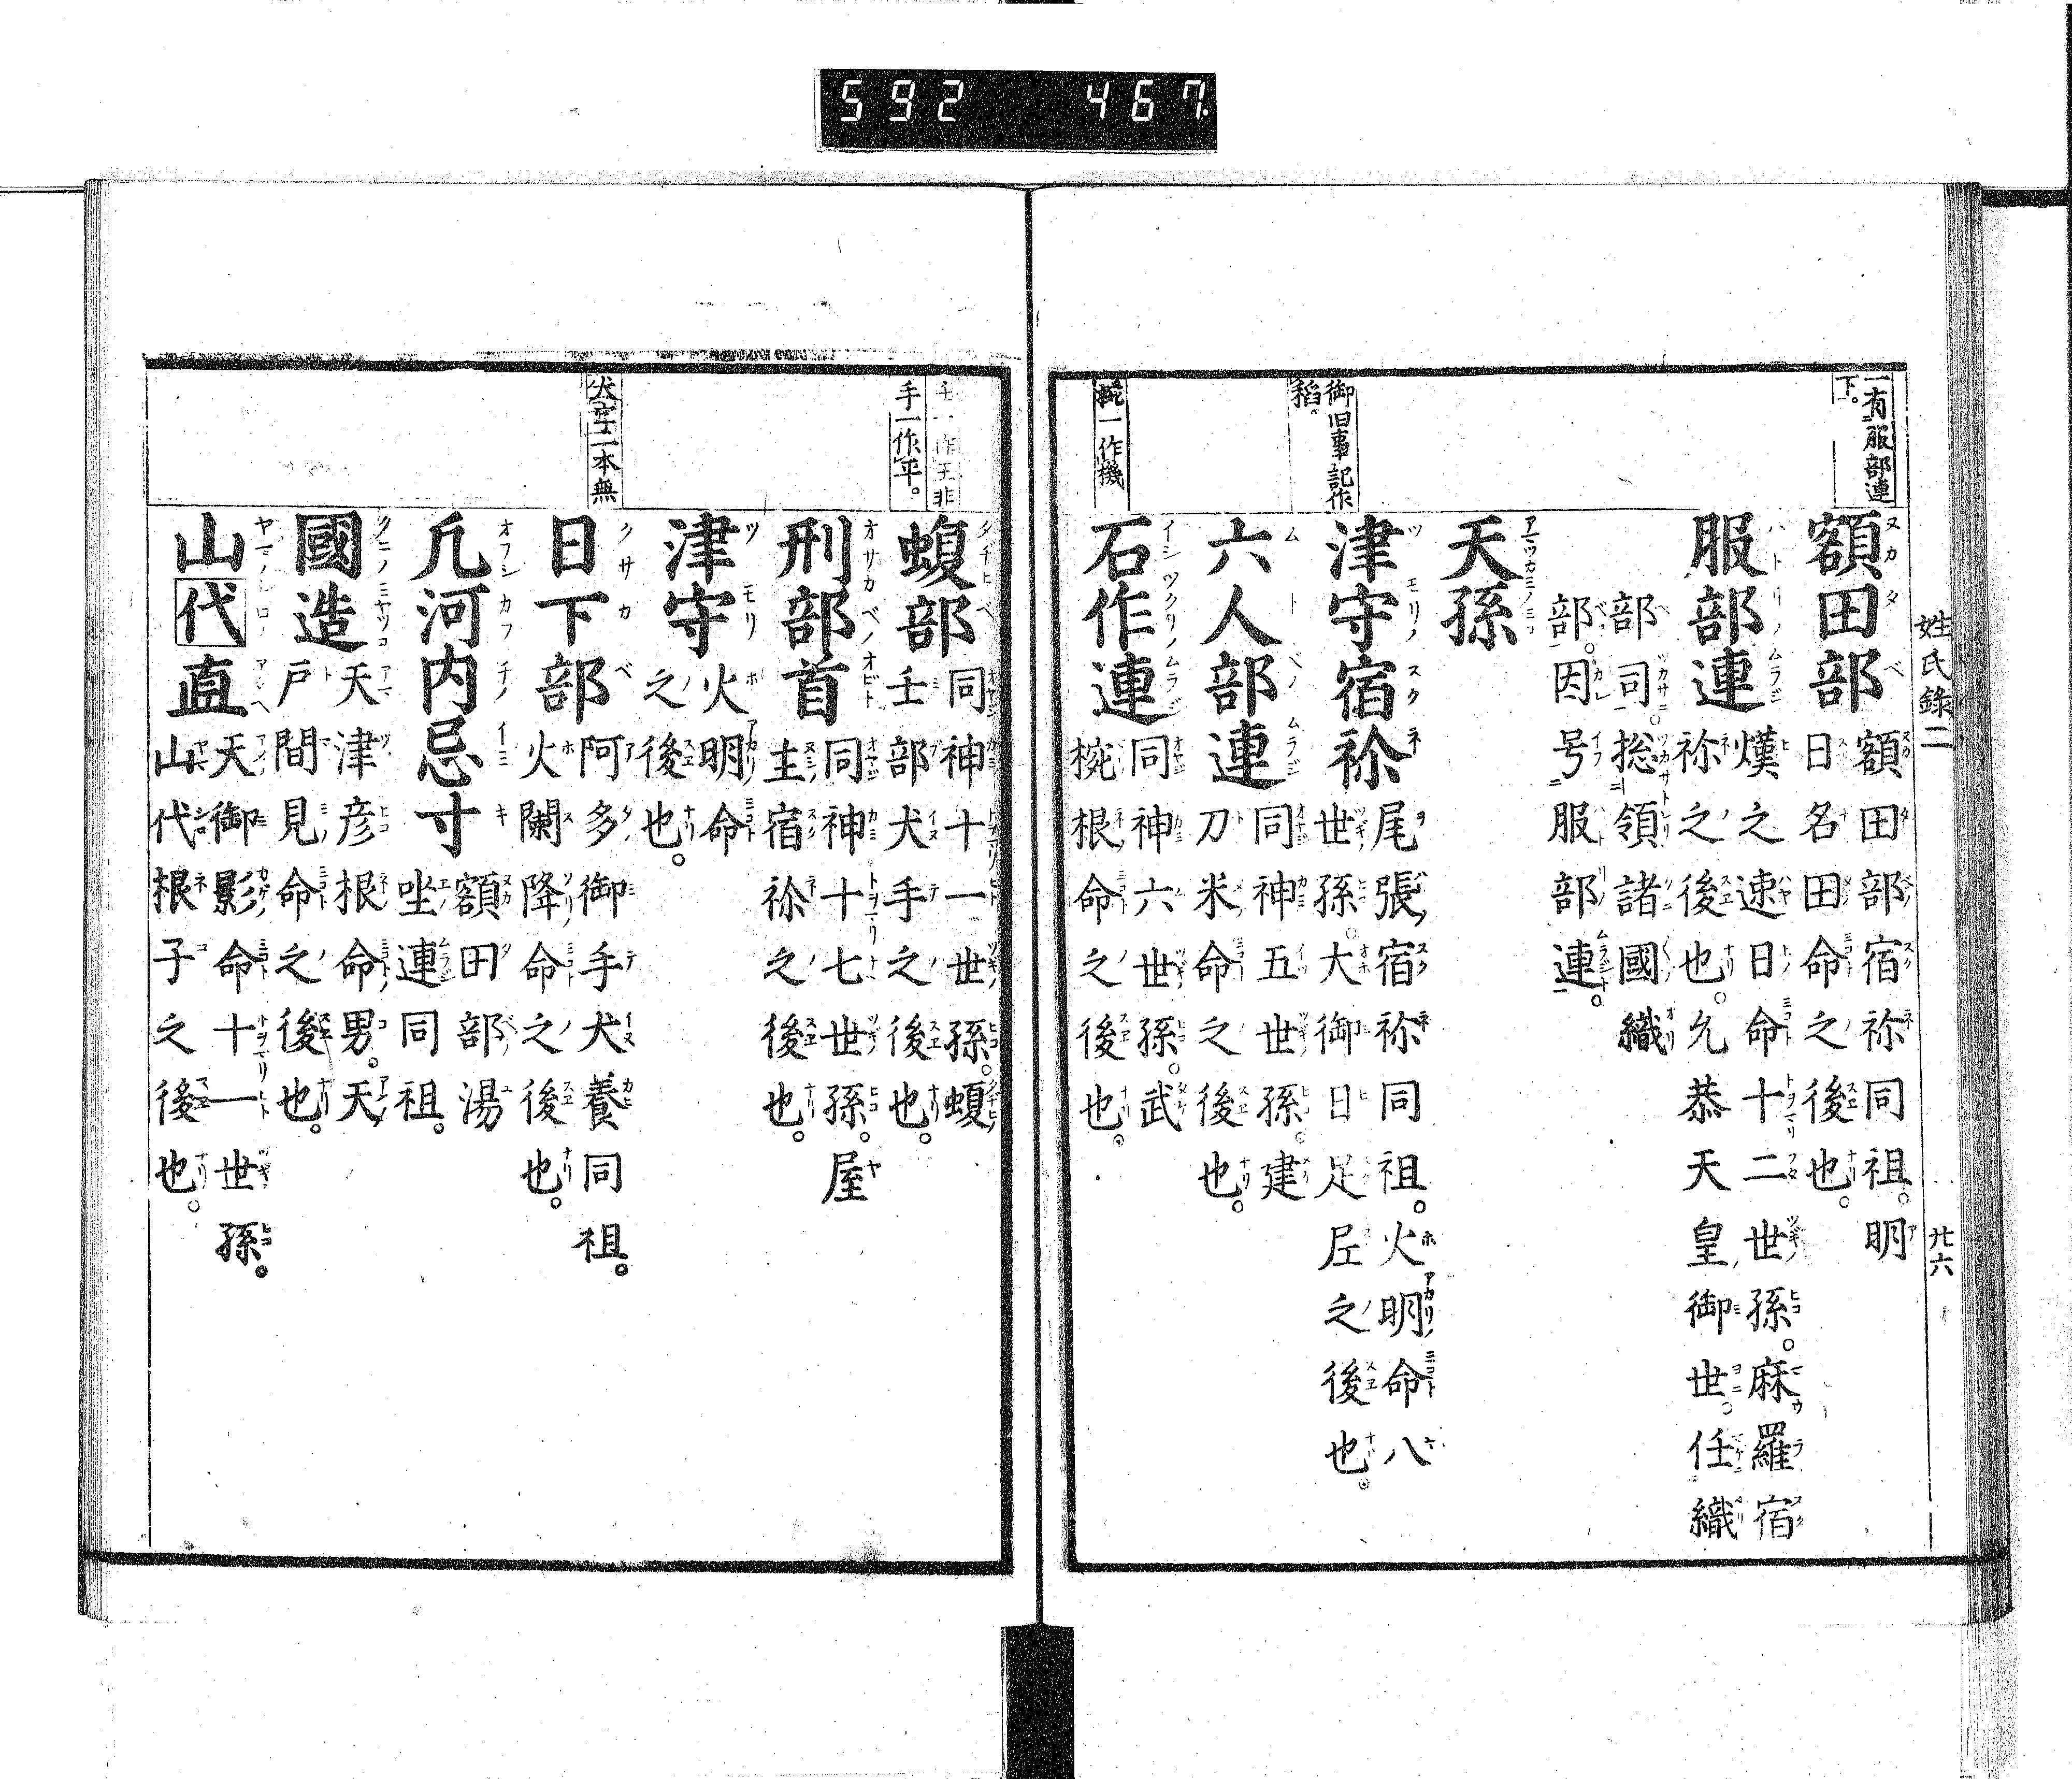 592 467.
姓氏錄二
廿六
一有服部連
下。
額田部
額田部宿祢同祖。明
日名田命之後也。
服部連
熯之速日命十二世孫。麻羅宿
祢之後也。允恭天皇御世。任織
部司。捴領諸國織
部。因号服部連。
天孫
御旧事記作
稻。
津守宿祢
尾張宿祢同祖。火明命八
世孫。大御日足尼之後也。
六人部連
同神五世孫。建
刀米命之後也。
椀一作機
石作連
同神六世孫。武
椀根命之後也。
壬一作王非
手一作平。
蝮部
同神十一世孫。蝮
壬部犬手之後也。
刑部首
同神十七世孫。屋
主宿祢之後也。
津守
火明命
之後也。
犬字一本無
日下部
阿多御手犬養同祖。
火闌降命之後也。
凡河内忌寸
額田部湯
坐連同祖。
國造
天津彦根命男。天
戸間見命之後也。
山代直
天御影命十一世孫。
山代根子之後也。